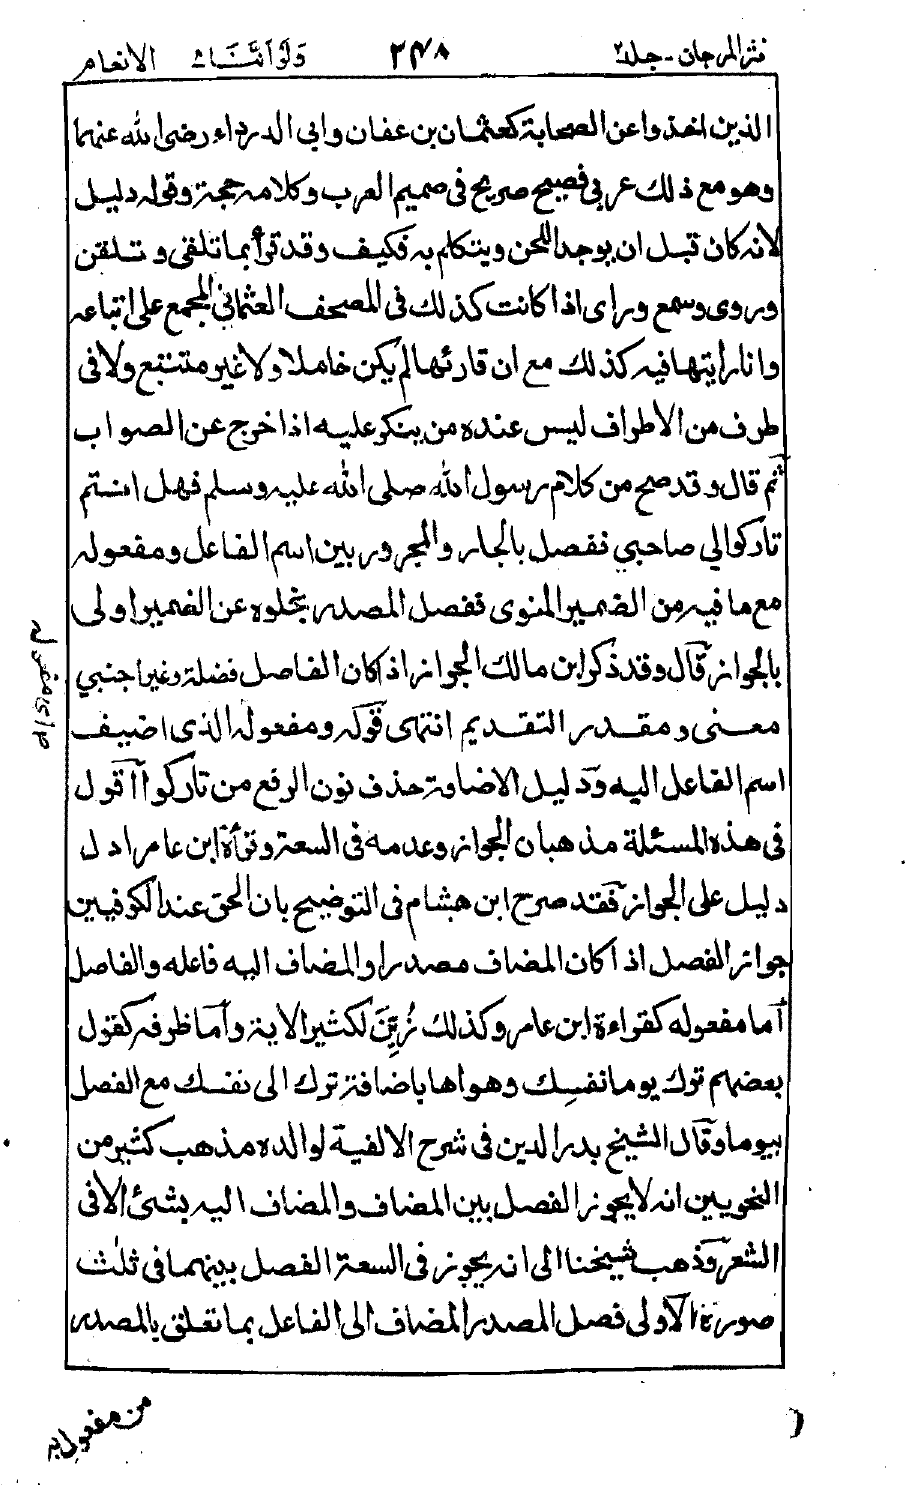 نثر المرجان - جلد٢ ٢٤٨ ولو اننا الانعام
الذين اخذوا عن الصحابة كعثمان بن عفان وابى الدرداء رضى الله عنهما
وهو مع ذلك عربى فصيح صريح فى صميم العرب وكلامه حجة وقوله دليل
لانه كان قبل ان يوجد اللحن ويتكلم به فكيف وقد قرأ بما تلقى وتلقن
وروى وسمع وراى اذا كانت كذلك فى المصحف العثمانى المجمع على اتباعه
وانا رأيتها فيه كذلك مع ان قارئها لم يكن خاملا ولا غير متتبع ولا فى
طرف من الاطراف ليس عنده من ينكر عليه اذا خرج عن الصواب
ثم قال وقد صح من كلام رسول الله صلى الله عليه وسلم فهل انتم
تاركوا لى صاحبي ففصل بالجار والمجرور بين اسم الفاعل ومفعوله
مع ما فيه من الضمير المنوى ففصل المصدر بخلوه عن الضمير اولى
بالجواز قال وقد ذكر ابن مالك الجواز اذ كان الفاصل فضلة وغير اجنبي
معنى ومقدر التقديم انتهى قوله ومفعوله الذى اضيف
اسم الفاعل اليه ودليل الاضافة حذف نون الرفع من تاركوا اقول
فى هذه المسئلة مذهبان الجواز وعدمه فى السعة وقرأة ابن عامر ادل
دليل على الجواز فقد صرح ابن هشام فى التوضيح بان الحق عند الكوفيين
جواز الفصل اذا كان المضاف مصدرا والمضاف اليه فاعله والفاصل
أما مفعوله كقراءة ابن عامر وكذلك زُيِّنَ لكثير الاية وأما ظرفه كقول
بعضهم ترك يوما نفسِك وهواها باضافة ترك الى نفسك مع الفصل
بيوما وقال الشيخ بدر الدين فى شرح الالفية لوالده مذهب كثير من
النحويين انه لا يجوز الفصل بين المضاف والمضاف اليه بشئ الا فى
الشعر وذهب شيخنا الى انه يجوز فى السعة الفصل بينهما فى ثلث
صورة الاولى فصل المصدر المضاف الى الفاعل بما تعلق بالمصدر
من مفعول به
اى مفعوله